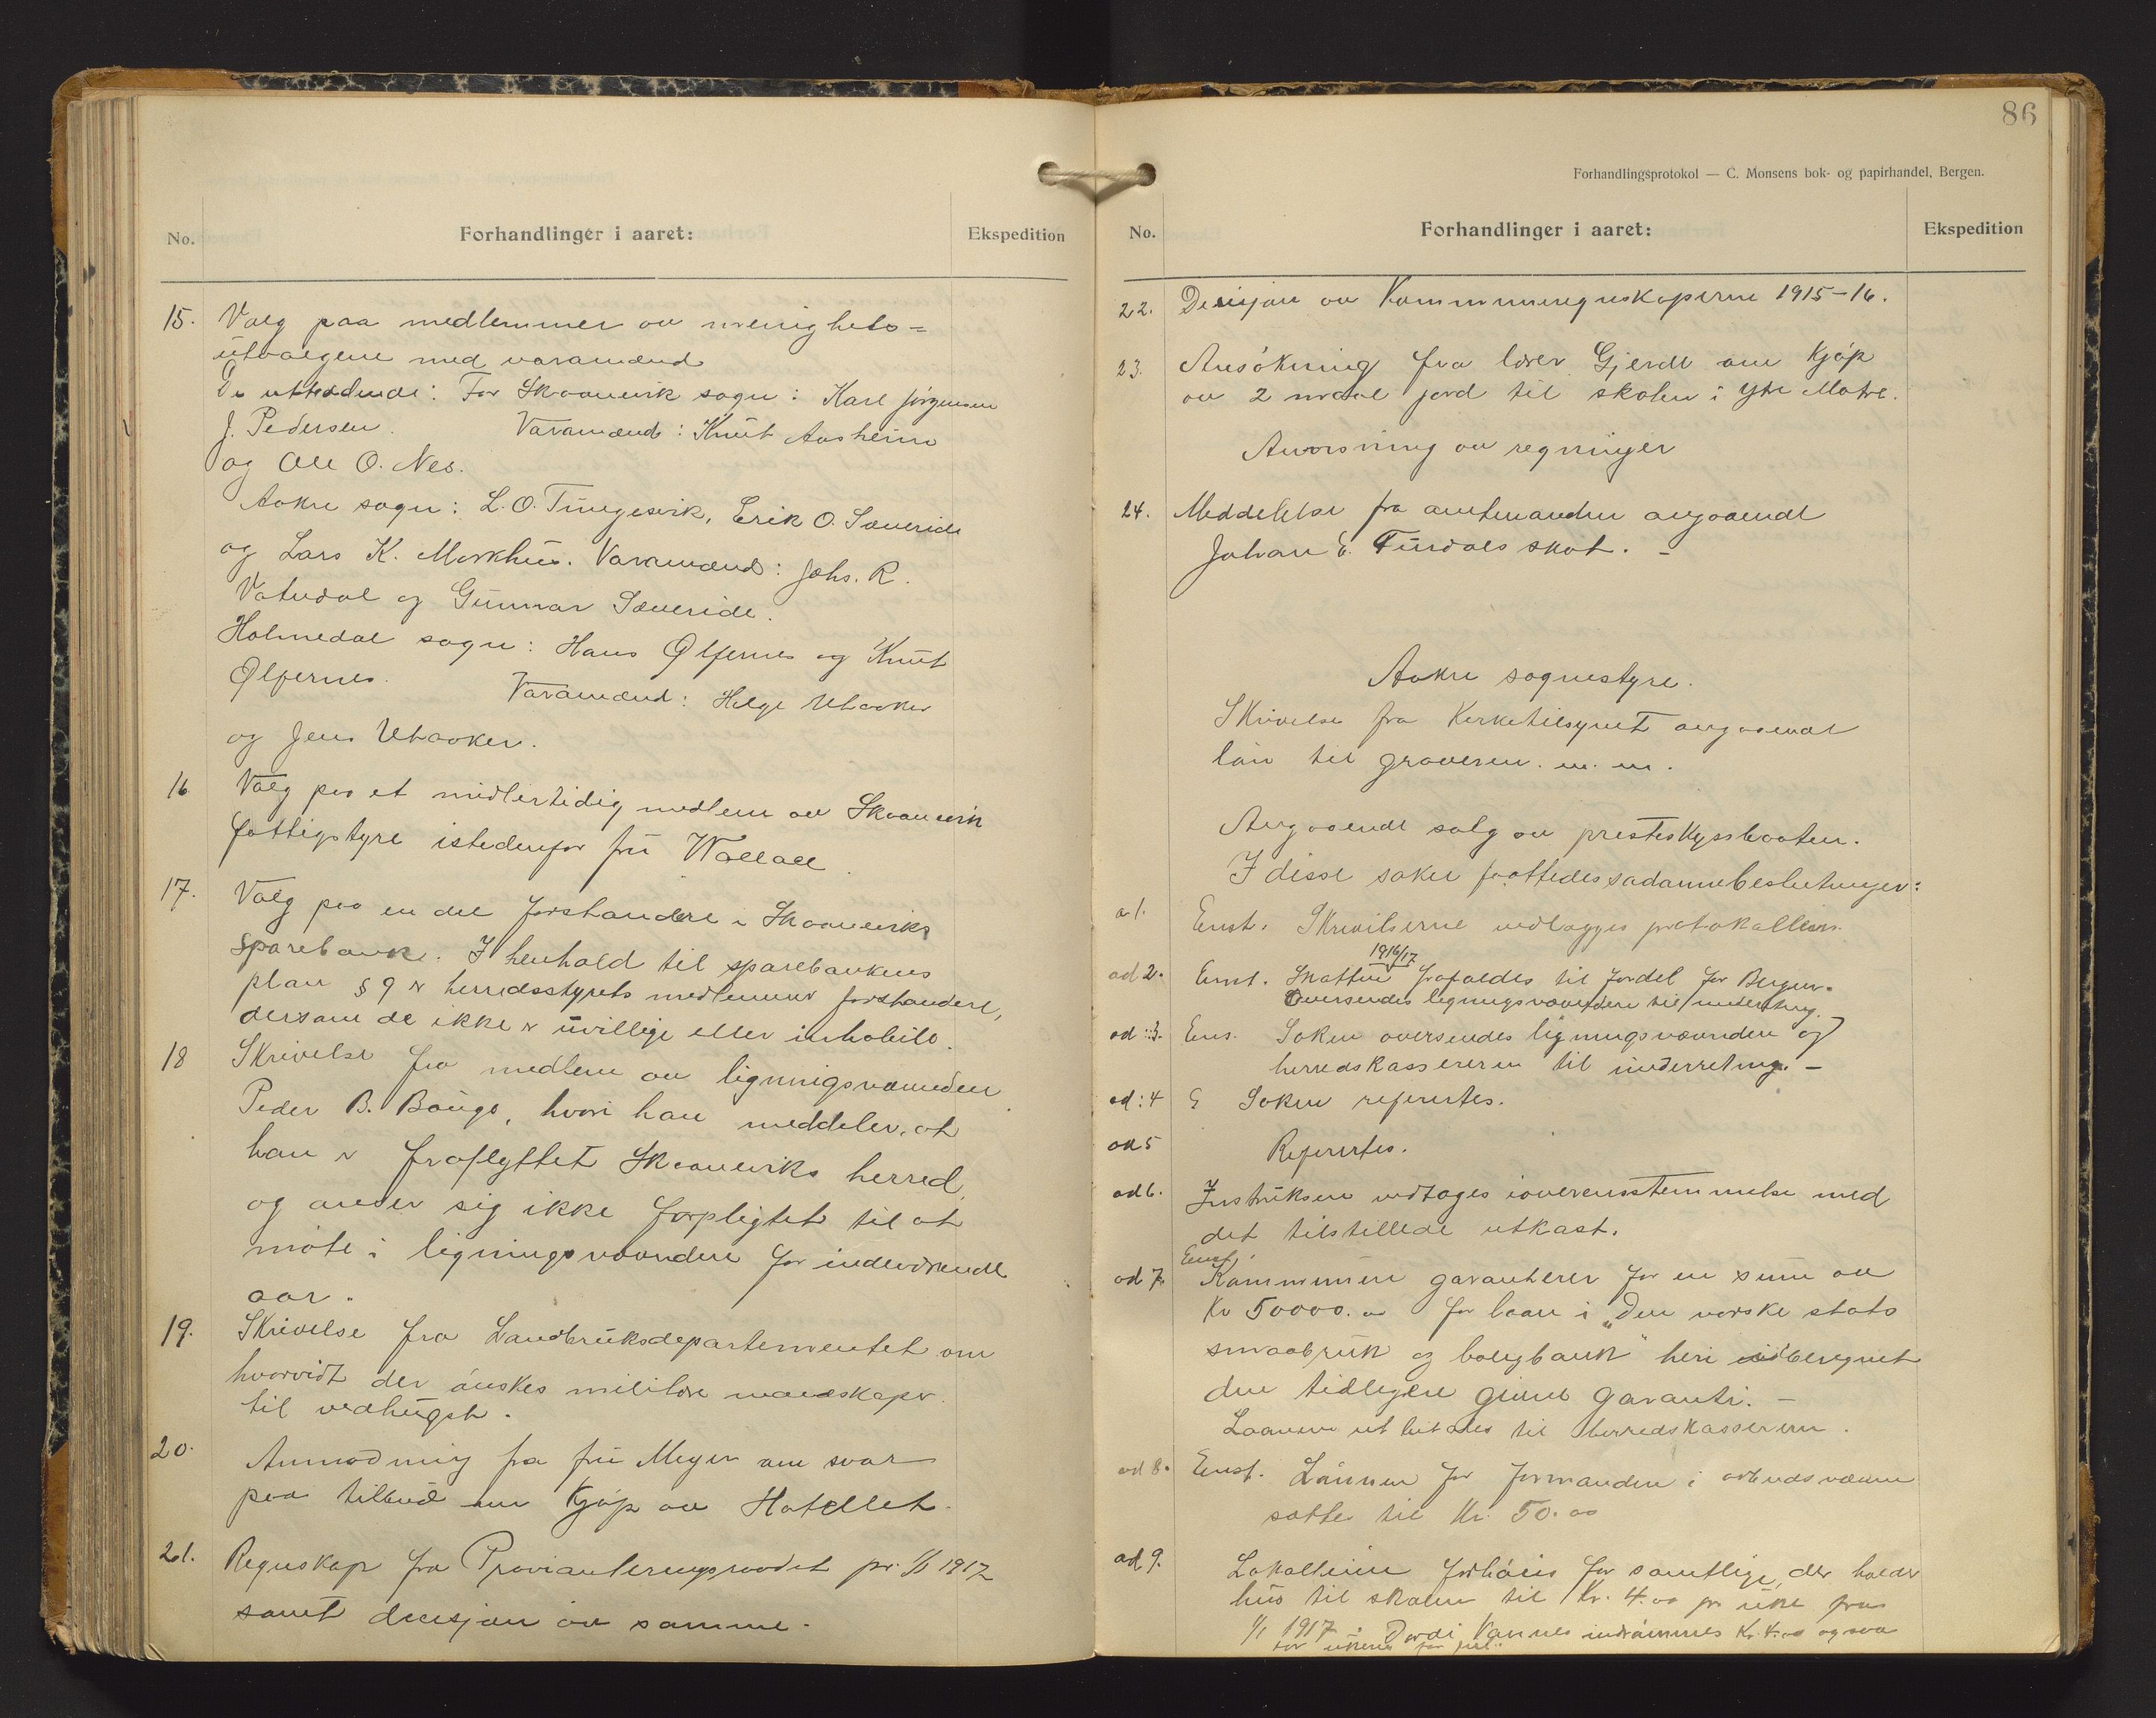 No.
Forhandlinger i aaret:
Ekspedition
15. Valg paa medlemmer av menighets=
utvalgene med varamænd
De uttrædende: For Skaanevik sogn: Karl Jørgensen
J. Pedersen. Varamænd: Knut Aasheim
og Ole O. Nes.
Aakre sogn: L. O. Tungesvik, Erik O. Sæveride
og Lars K. Markhus. Varamænd: Johs. R.
Vatndal og Gunnar Sæveride.
Holmedal sogn: Hans Ølfernes og Knut
Ølfernes. Varamænd: Helge Utaaker
og Jens Utaaker.
16 Valg paa et midlertidig medlem av Skaanevik
fattigstyre istedenfor fru Wallall.
17. Valg paa en del forstandere i Skaaneviks
sparebank. I henhold til sparebankens
plan § 9 er herredsstyrets medlemmer forstandere,
dersom de ikke er uvillige eller inhabile.
18 Skrivelse fra medlem av ligningsnævnden
Peder B. Baugs, hvori han meddeler, at
han er fraflyttet Skaaneviks herred,
og anser sig ikke forpligtet til at
møte i ligningsnævnden for indeværende
aar.
19. Skrivelse fra Landbruksdepartementet om
hvorvidt der ønskes militære mandskaper
til vedhugst.
20. Anmodning fra fru Meyer om svar
paa tilbud om kjøp av Hotellet.
21. Regnskap fra Provianteringsraadet pr. 1/1 1917
samt decisjon av samme.
86
Forhandlingsprotokol — C. Monsens bok- og papirhandel, Bergen.
No.
Forhandlinger i aaret:
Ekspedition
22. Decisjon av Kommuneregnskaperne 1915-16.
23. Ansøkning fra lærer Gjerde om kjøp
av 2 maal jord til skolen i Ytre Matre.
Anvisning av regninger
24. Meddelelse fra amtmanden angaaende
Johan E. Tungals skat. –
Aakre sognestyre.
Skrivelse fra Kirketilsynet angaaende
løn til graveren. m. m.
Angaaende salg av presteskyssbaaten.
I disse saker fattedes sadanne beslutninger:
a 1. Enst. Skrivelserne vedlægges protokollen.
1916/17
ad 2. Enst. Skatten frafaldes til fordel for Bergen.
Oversendes ligningsnævnden til underretning.
ad: 3. Ens. Saken oversendes ligningsnævnden og
herredskassereren til underretning. –
ad: 4 E Saken refertes.
ad 5 Refertes.
ad 6. Instruksen vedtages i overensstemmelse med
det tilstillede utkast.
Enst.
ad 7. Kommunen garanterer for en sum av
Kr 50000.00 for laan i "Den norske stats
smaabruk og boligbank" heri iberegnet
den tidligere givne garanti. –
Laanene utbetales til herredskassereren.
ad 8. Enst. Lønnen for formanden i arbeidsnævnden
sættes til Kr. 50.00
ad 9. Lokalleien forhøies for samtlige, der holder
hus til skolen til Kr. 4.00 pr. uke fra
1/1 1917. Dordi Vannes indrømmes Kr. 4.00 ogsaa
for ukerne før jul.